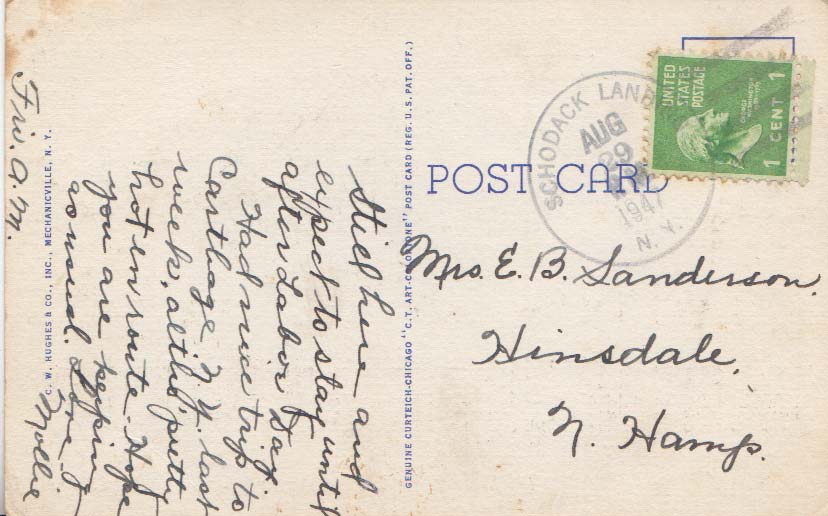 Fri. A.M.
Still here and
expect to stay until
after Labor Day.
Had nice trip to
Carthage N.Y. last
week, altho' pretty
hot en route. Hope
you are keeping
as usual. Love
Mollie
C. W. HUGHES & CO., INC., MECHANICVILLE, N. Y.
GENUINE CURTEICH-CHICAGO "C.T. ART-COLORTONE" POST CARD (REG. U.S. PAT. OFF.)
POST CARD
SCHODACK LAND
AUG
29
1947
N. Y.
UNITED
STATES
POSTAGE
GEORGE
WASHINGTON
1 CENT 1
Mrs. E. B. Sanderson,
Hinsdale,
N. Hamp.